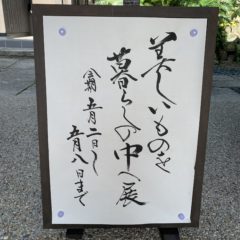 美しいものを
暮らしの中へ展
会期 五月二日〜
五月八日まで